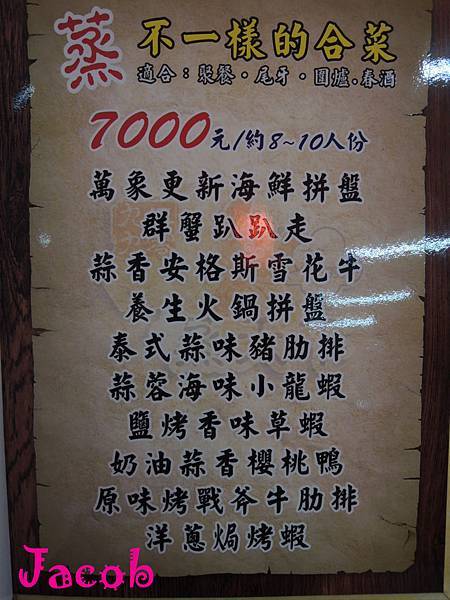 蒸 不一樣的合菜
適合：聚餐·尾牙·圍爐·春酒
7000元/約8~10人份
萬象更新海鮮拼盤
群蟹趴趴走
蒜香安格斯雪花牛
養生火鍋拼盤
泰式蒜味豬肋排
蒜蓉海味小龍蝦
鹽烤香味草蝦
奶油蒜香櫻桃鴨
原味烤戰斧牛肋排
洋蔥焗烤蝦
Jacob